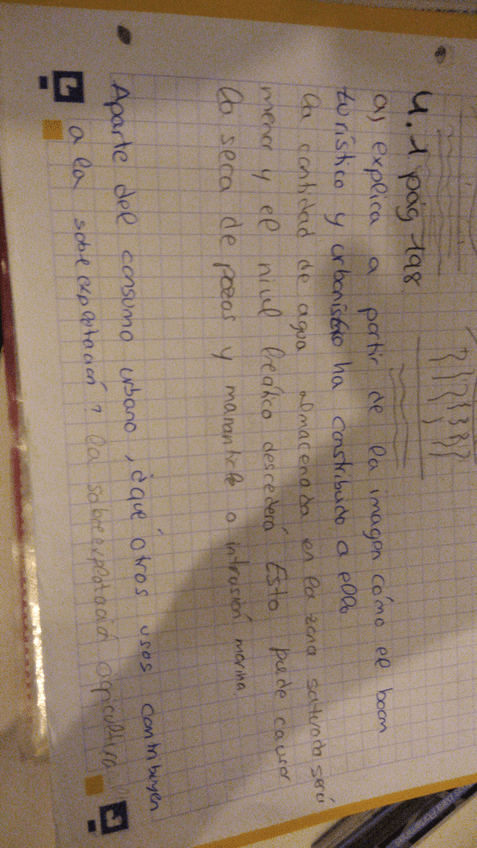 4.1 pág 198
a) explica a partir de la imagen cómo el boom
turístico y urbanístico ha contribuido a ello
La cantidad de agua almacenada en la zona saturada será
menor y el nivel freático descederá Esto puede causar
la seca de pozos y manantiale o intrusión marina.
Aparte del consumo urbano, ¿qué otros usos contribuyen
a la sobreexplotación? La sobreexplotación agricultura